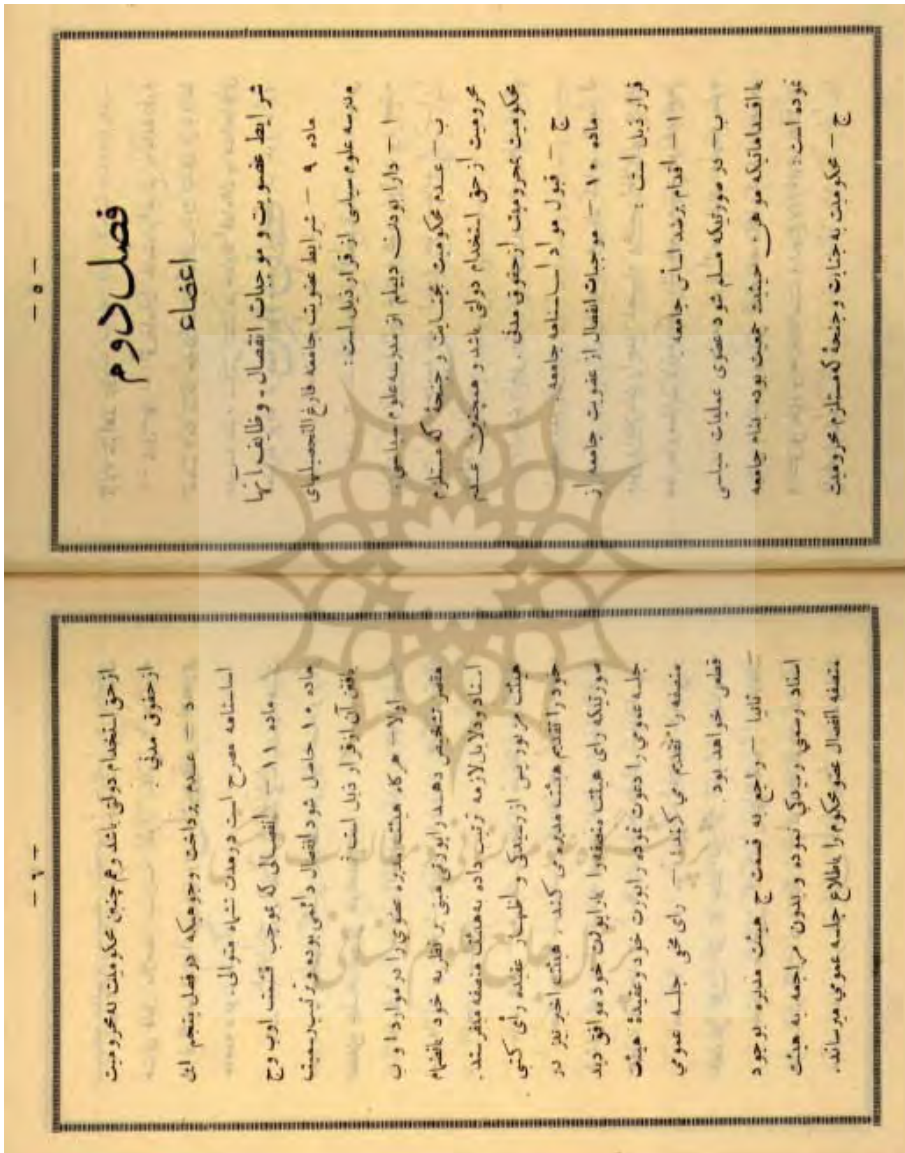 - ۵ -
فصل دوم
اعضاء
شرایط عضویت و موجبات انفصال - وظایف آنها
ماده ۹ - شرایط عضویت جامعه فارغ‌التحصیلهای
مدرسه علوم سیاسی از قرار ذیل است:
ا - دارا بودن دیپلم از مدرسه علوم سیاسی
ب - عدم محکومیت بجنایت و جنحهٔ که مستلزم
محرومیت از حق استخدام دولتی باشد و همچنین عدم
محکومیت بمحرومیت از حقوق مدنی.
ج - قبول مواد اساسنامه جامعه.
ماده ۱۰ - موجبات انفصال از عضویت جامعه از
قرار ذیل است:
ا - اقدام برضد اساس جامعه
ب - در صورتیکه مسلم شود عضوی عملیات سیاسی
یا اقداماتیکه موهن حیثیت جمعیت بوده بنام جامعه
نموده است:
ج - محکومیت به جنایت و جنحهٔ که مستلزم محرومیت
- ۶ -
از حق استخدام دولتی باشد و هم چنین محکومیت به محرومیت
از حقوق مدنی.
د - عدم پرداخت وجوهیکه در فصل پنجم این
اساسنامه مصرح است در مدت ششماه متوالی.
ماده ۱۱ - انفصالی که بموجب قسمت ا و ب و ج
ماده ۱۰ حاصل شود انفصال دائمی بوده و ترتیب رسمیت
یافتن آن از قرار ذیل است
اولا - هرگاه هیئت مدیره عضوی را در موارد ا و ب
مقصر تشخیص دهد راپورتی مبنی بر نظریه خود بانضمام
اسناد و دلایل لازمه ترتیب داده به هیئت منصفه میفرستد.
هیئت مزبور پس از رسیدگی و اظهار عقیده رأی کتبی
خود را تقدیم هیئت مدیره می کند. هیئت اخیر نیز در
صورتیکه رای هیئت منصفه را با راپورت خود موافق دید
جلسه عمومی را دعوت نموده راپورت خود و عقیدهٔ هیئت
منصفه را تقدیم می کند - رای مخفی جلسه عمومی
قطعی خواهد بود
ثانیا - راجع به قسمت ج هیئت مدیره بوجود
اسناد رسمی رسیدگی نموده و بدون مراجعه به هیئت
منصفه انفصال عضو محکوم را باطلاع جلسه عمومی میرساند.